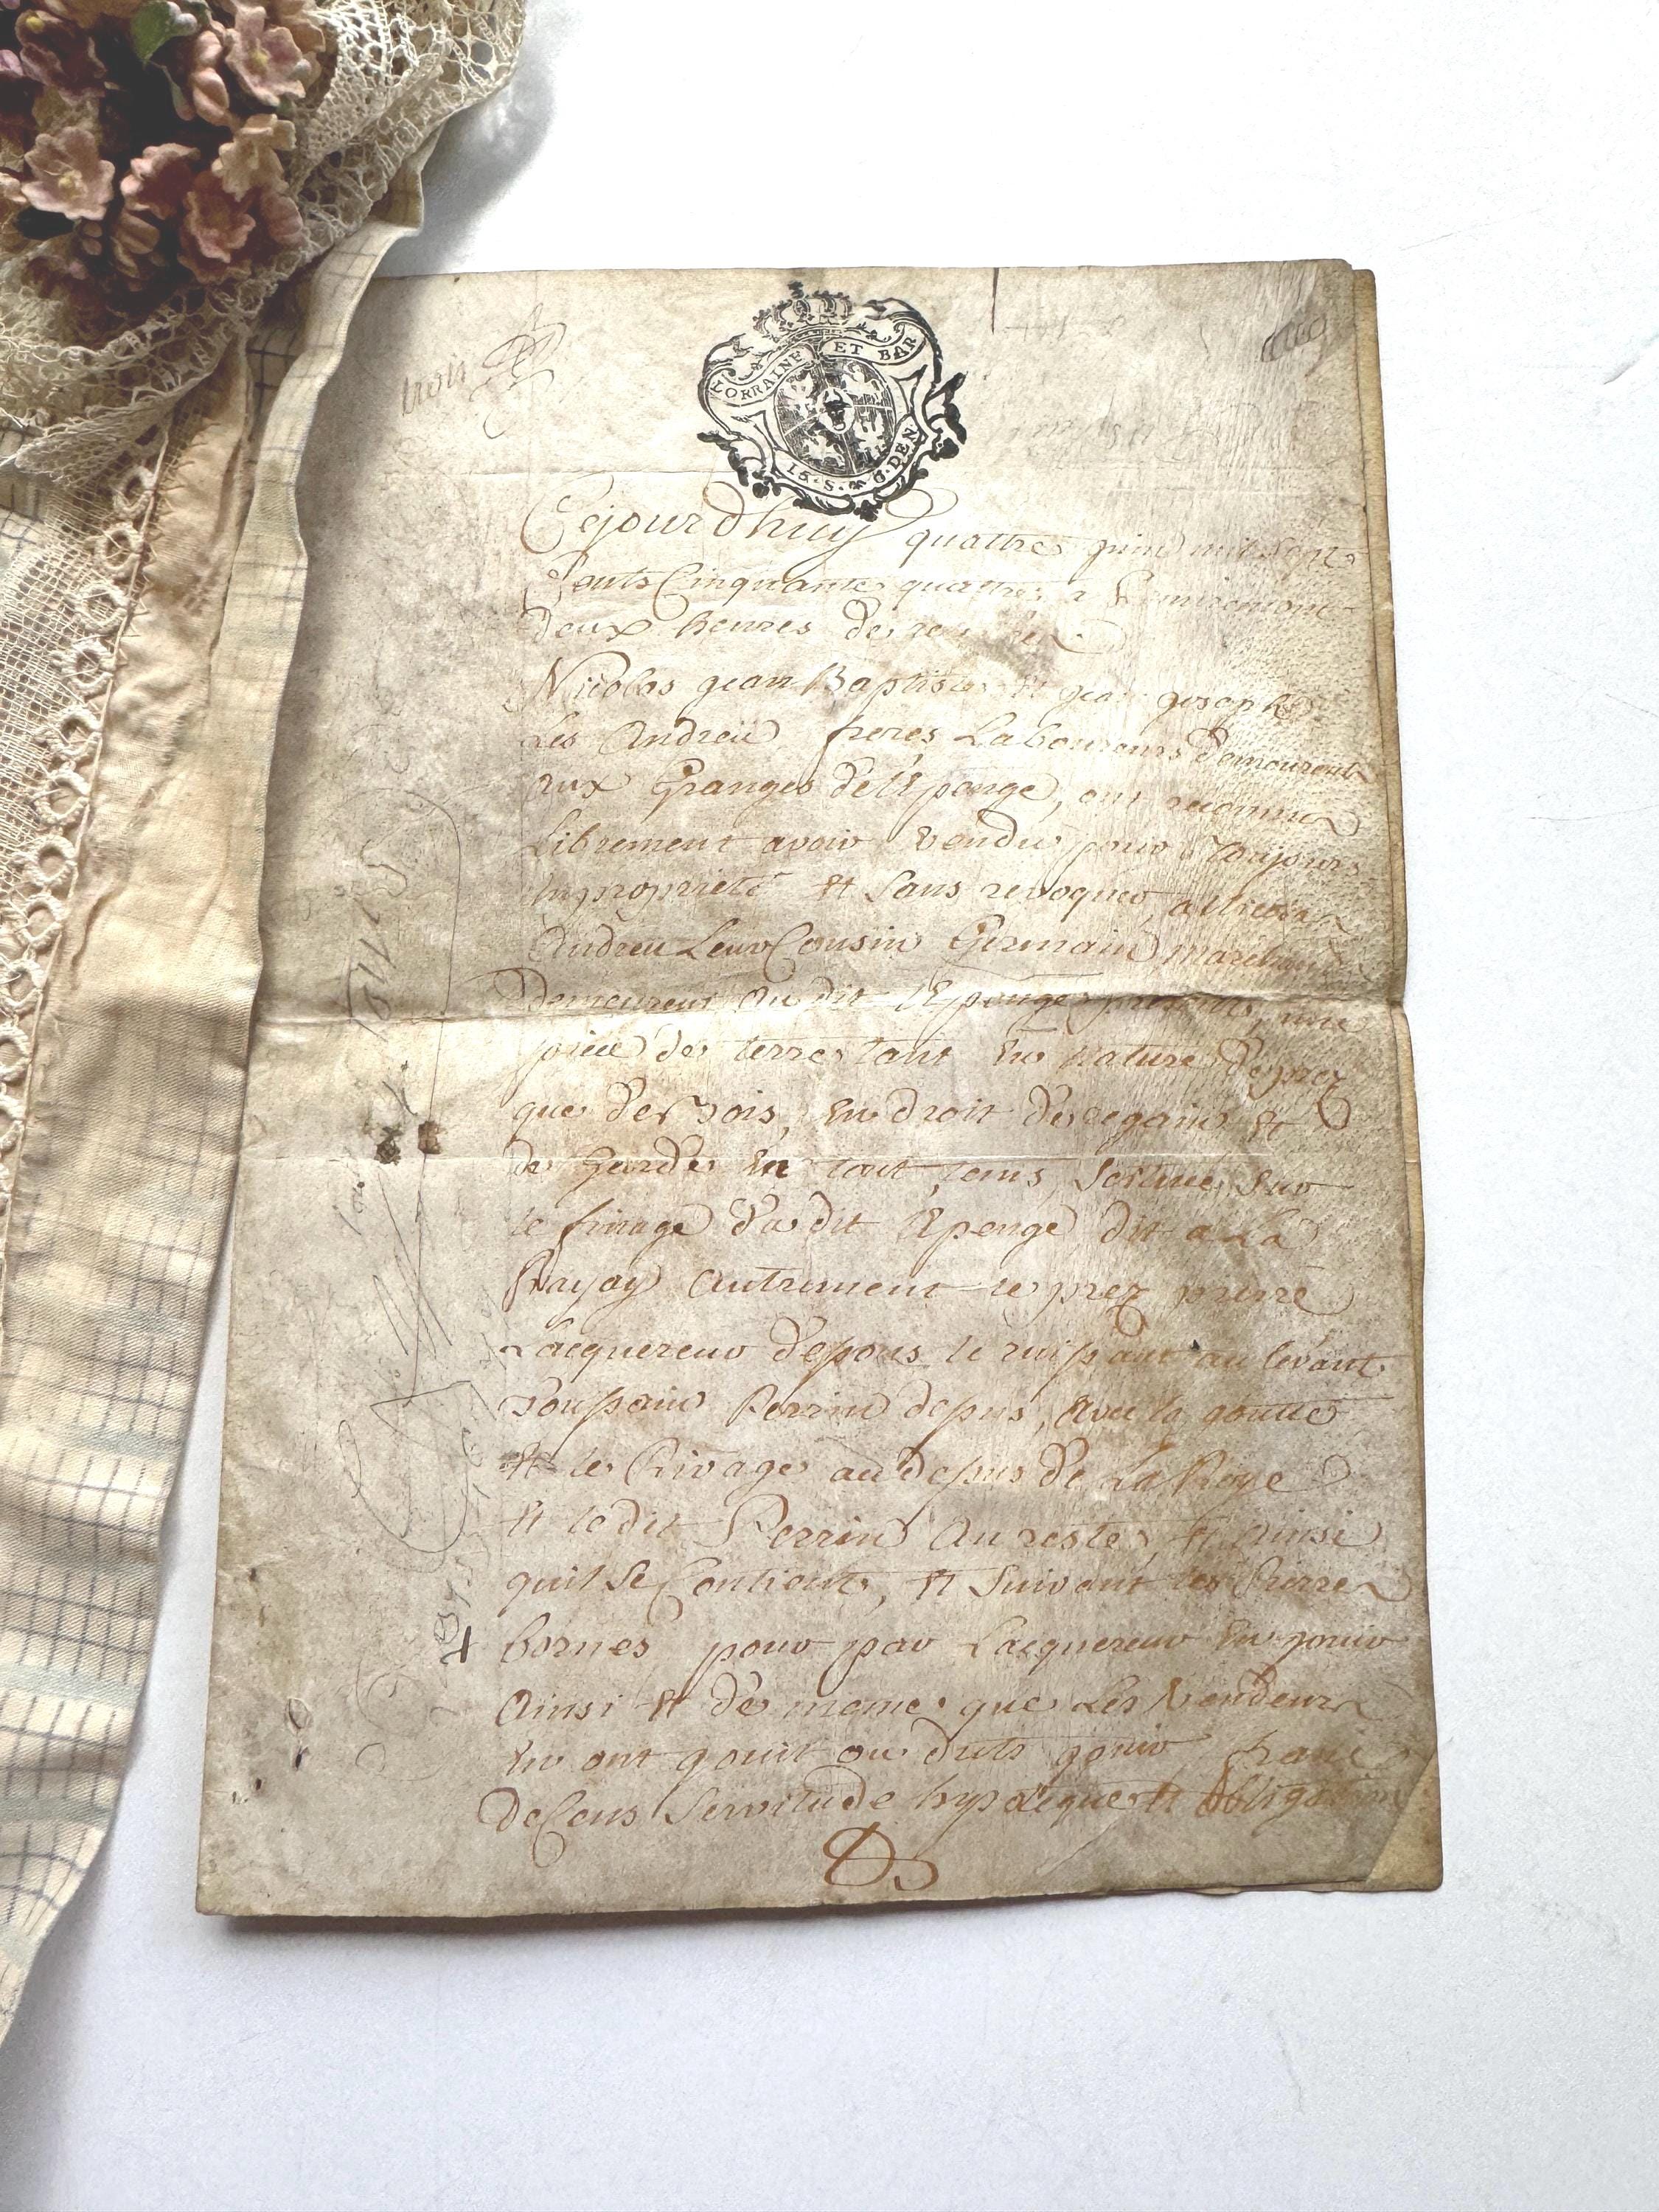 trois
LORRAINE ET BAR
15 · S · 6 · DEN
Cejourdhuy quattre juin mil Sept
Cents Cinquante quattre a Remiremont
deux heures de relevée
Nicolas jean Baptiste Et jean joseph
Les Andreü freres Laboureurs demeurent
aux Granges de l'Epange, ont reconnu
Librement avoir vendu pour Toujours
En proprieté Et Sans revoquer, a
Andreu Leur Cousin Germain
Demeurent au dit l'Epange present, une
piece de terre tant En nature de prez
que de Bois, En droit de regain Et
de Garde En tout tems, Scitué Sur
le finage du dit Epenge dit a La
autrement le prez
Lacquereur depous le au levant
Perrin depus, avec la goutte
Et le Rivage au depus de La Roye
Et le dit Perrin Au reste, Et ainsi
quil Se Contient, Et Suivant les Pierre
bornes pour par Lacquereur En jouir
Ainsi Et de meme que Les Vendeur
En ont jouit ou duts jouir franc
de Cens Servitude hypoteque Et obligation